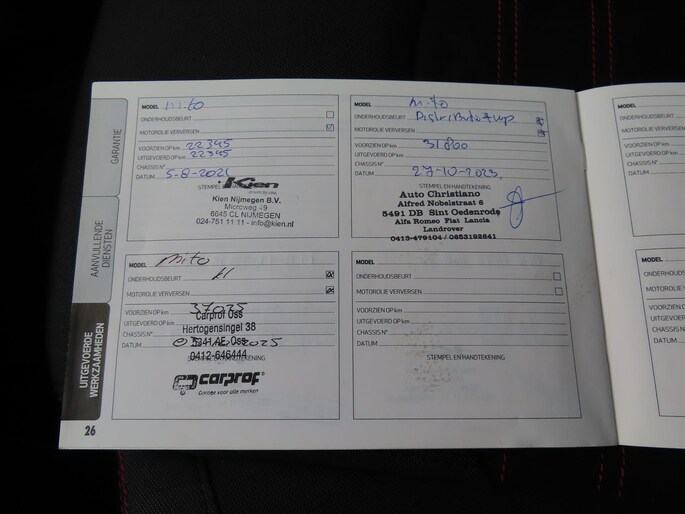 GARANTIE
AANVULLENDE
DIENSTEN
UITGEVOERDE
WERKZAAMHEDEN
26
MODEL mito
ONDERHOUDSBEURT
MOTOROLIE VERVERSEN
VOORZIEN OP km 22345
UITGEVOERD OP km 22345
CHASSIS N°
DATUM 5-8-2021
STEMPEL
Kien
Kien Nijmegen B.V.
Microweg 49
6545 CL NIJMEGEN
024-751 11 11 - info@kien.nl
MODEL Mito
ONDERHOUDSBEURT Distributie + wp
MOTOROLIE VERVERSEN
VOORZIEN OP km 31.800
UITGEVOERD OP km
CHASSIS N°
DATUM 27-10-2023
STEMPEL EN HANDTEKENING
Auto Christiano
Alfred Nobelstraat 6
5491 DB Sint Oedenrode
Alfa Romeo Fiat Lancia
Landrover
0413-479104 / 0653182841
MODEL Mito
ONDERHOUDSBEURT
MOTOROLIE VERVERSEN
VOORZIEN OP km 37025
UITGEVOERD OP km
CHASSIS N°
DATUM
Carprof Oss
Hertogensingel 38
5341 AE Oss
0412-646444
STEMPEL EN HANDTEKENING
carprof
Garage voor alle merken
MODEL
ONDERHOUDSBEURT
MOTOROLIE VERVERSEN
VOORZIEN OP km
UITGEVOERD OP km
CHASSIS N°
DATUM
STEMPEL EN HANDTEKENING
MODEL
ONDERHOUDSBEURT
MOTOROLIE
VOORZIEN OP
UITGEVOERD
CHASSIS N°
DATUM
MODEL
ONDERHOUD
MOTOROLIE
VOORZIEN
UITGEVOERD
CHASSIS
DATUM